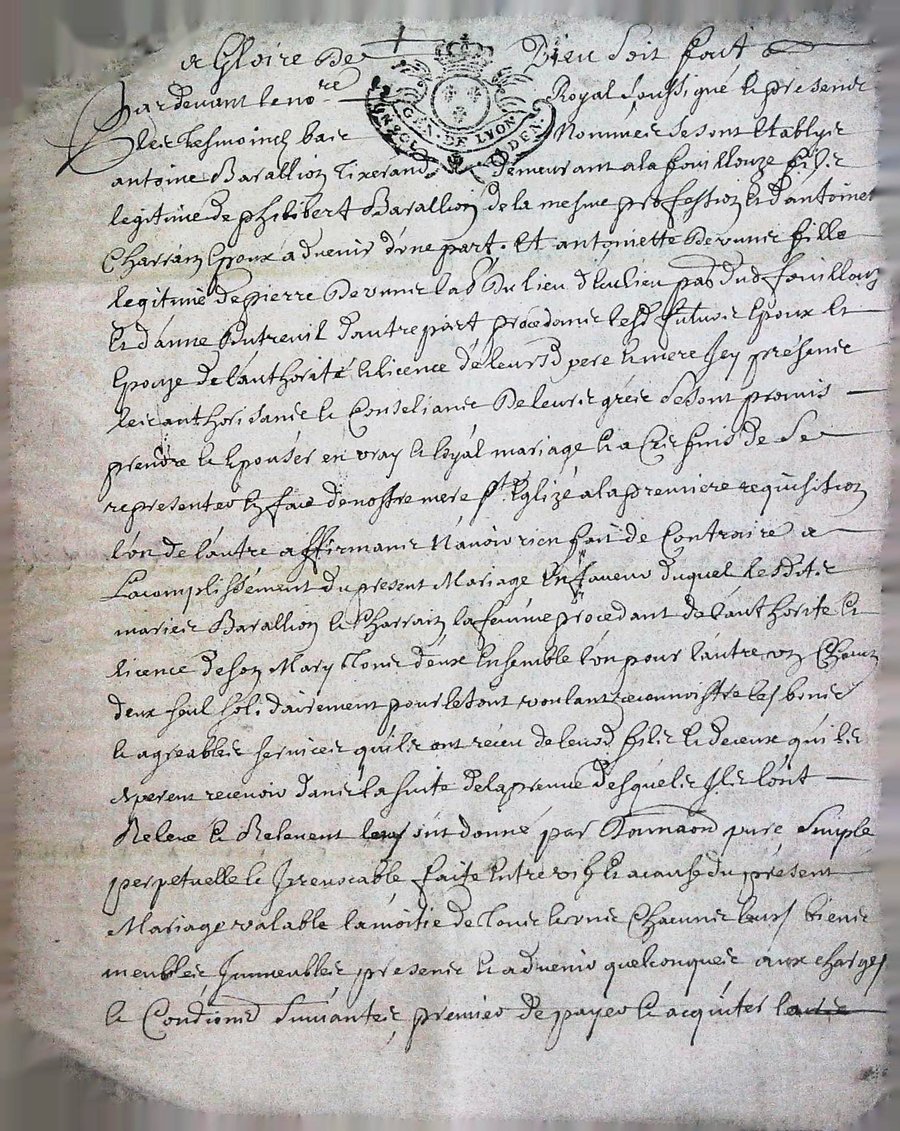 a Gloire de Dieu soit fait
GEN. DE LYON
UN SOL
Pardevant le no.re Royal soussigné le presents
et les tesmoincts bas Nommés se sont establys
antoine Barallion tixerand demeurant a la fouillouze filz
legitime de philibert Barallion de la mesme profession et d'antoinette
Charrain Epoux advenir d'une part. Et antoinette fille
legitime de pierre du lieu de
et d'anne Dutreuil d'autre part procedants lesd futurs Epoux et
Epouze de l'authorité et licence de leursd pere et mere Icy présents
les authorisants et Conseliants De leurs grés se sont promis
prendre et Epouser en vray et loyal mariage et a Ces fins de se
representer En face de nostre mere ste Eglize a la premiere requisition
l'un de l'autre affirmants N'avoir rien fait de Contraire a
L'acomplissement du present Mariage En faveur duquel lesdits
mariés Barallion et Charrain la femme procedant de l'authorité et
licence de son Mary tous deux Ensemble l'un pour l'autre un Chacun
deux seul sol. dairement pour le tout voulant reconnoistre les bons
et agreables services qu'ils ont receu de leurd filz et de ceux qu'ils
esperent recevoir dans la suite de la preuve desquels Ils l'ont
Relevé et Relevent ont donné par Donnaon pure simple
perpetuelle et Irrevocable faite Entre vifs et a cause du présent
Mariage valable la moitié de tous et uns Chacuns leurs biens
meubles Immeubles presents et advenir quelconques aux charges
et Condions suivantes, premier de payer et acquiter